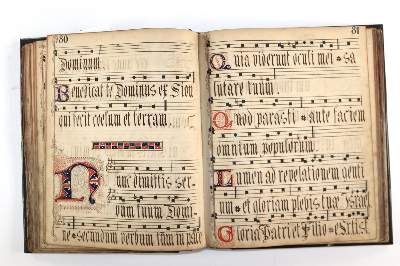 80
Dominum.
Benedicat te Dominus ex Sion
qui fecit coelum et terram.
Nunc dimittis ser-
vum tuum Domi-
ne secundum verbum tuum in pace
81
Quia viderunt oculi mei sa
lutare tuum.
Quod parasti ante faciem
omnium populorum.
Lumen ad revelationem genti
um et gloriam plebis tuae Israel
Gloria Patri et Filio et S